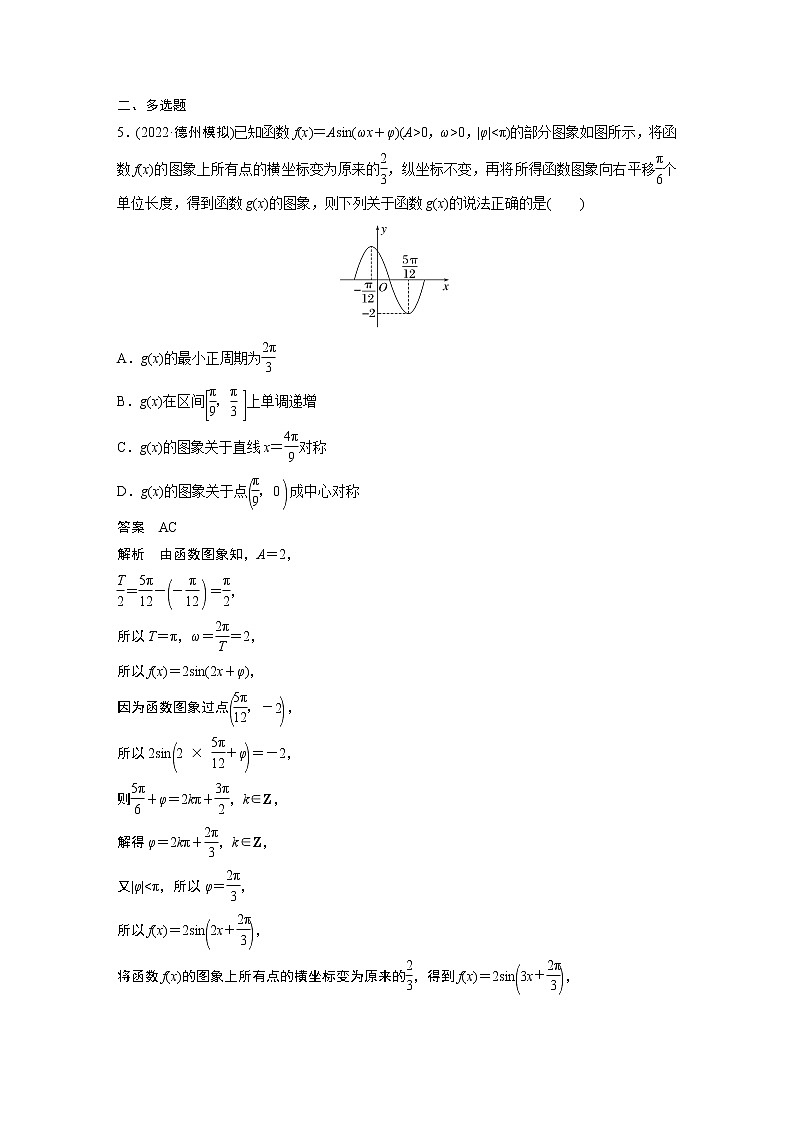 二、多选题
5．(2022·德州模拟)已知函数 f(x)＝Asin(ωx＋φ)(A>0，ω>0，|φ|<π)的部分图象如图所示，将函
数 f(x)的图象上所有点的横坐标变为原来的2/3，纵坐标不变，再将所得函数图象向右平移π/6个
单位长度，得到函数 g(x)的图象，则下列关于函数 g(x)的说法正确的是(　　)
y
5π/12
－π/12 O x
－2
A．g(x)的最小正周期为2π/3
B．g(x)在区间[π/9，π/3]上单调递增
C．g(x)的图象关于直线 x＝4π/9对称
D．g(x)的图象关于点(π/9，0)成中心对称
答案　AC
解析　由函数图象知，A＝2，
T/2＝5π/12－(－π/12)＝π/2，
所以 T＝π，ω＝2π/T＝2，
所以 f(x)＝2sin(2x＋φ)，
因为函数图象过点(5π/12，－2)，
所以 2sin(2 × 5π/12＋φ)＝－2，
则5π/6＋φ＝2kπ＋3π/2，k∈Z，
解得 φ＝2kπ＋2π/3，k∈Z，
又|φ|<π，所以 φ＝2π/3，
所以 f(x)＝2sin(2x＋2π/3)，
将函数 f(x)的图象上所有点的横坐标变为原来的2/3，得到 f(x)＝2sin(3x＋2π/3)，